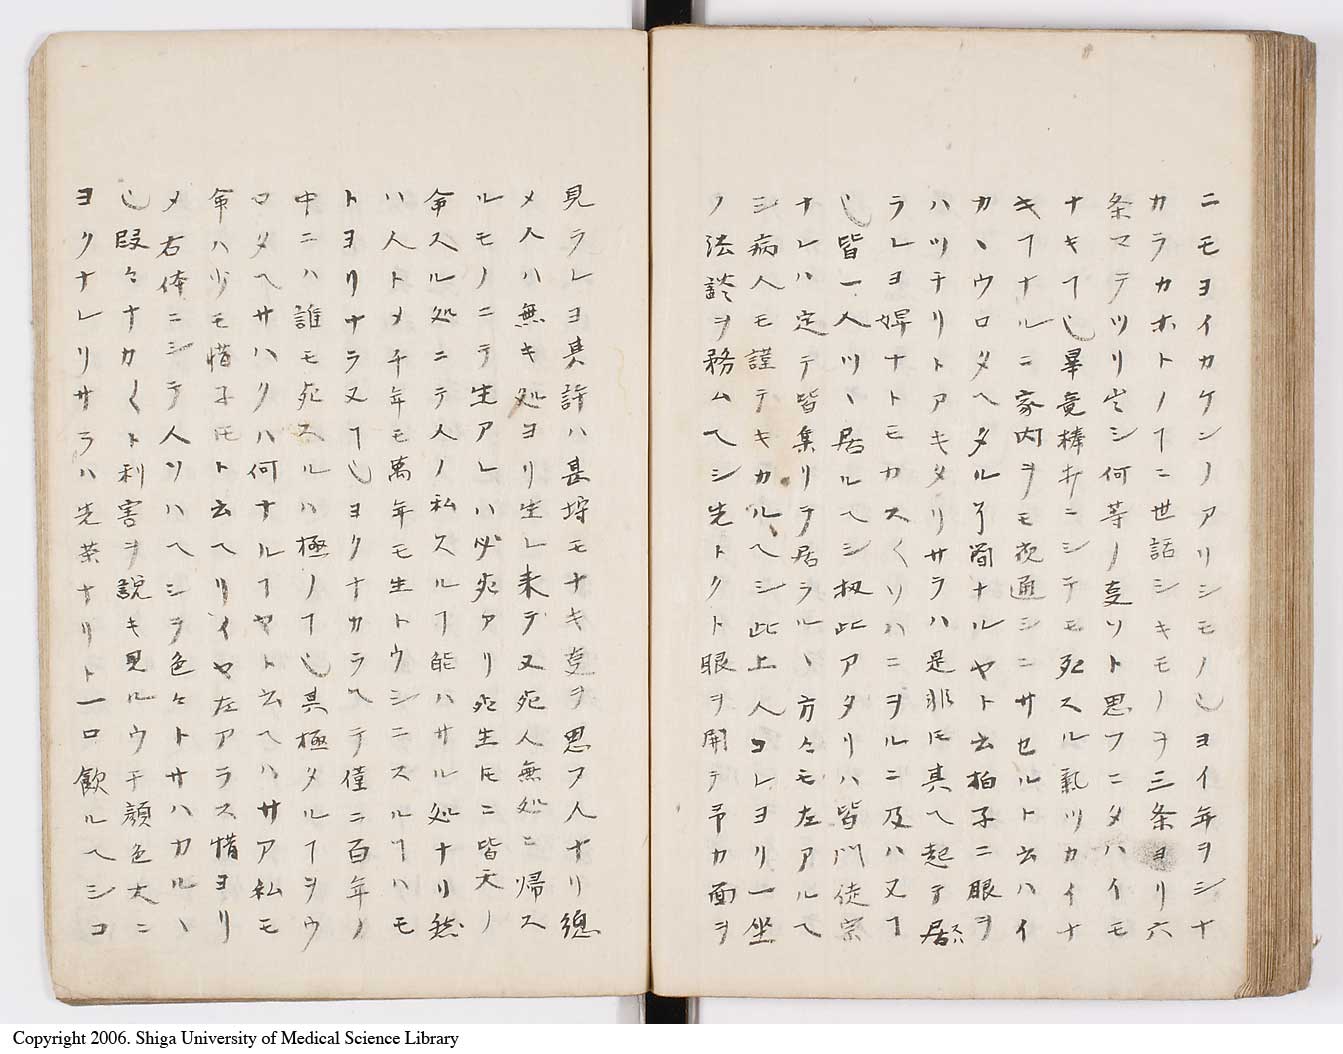 ニモヨイカケンノアリシモノ乄ヨイ年ヲシナ
カラカホトノヿニ世話シキモノヲ三条ヨリ六
条マテツリ出シ何等ノ叓ソト思フニタハイモ
ナキヿ乄畢竟棒ギニシテモ死スル氣ツカイナ
キヿナルニ家内ヲモ夜通シニサセルト云ハイ
カヽウロタヘタル了簡ナルヤト云拍子ニ眼ヲ
ハツチリトアキタリサラハ是非𪜈其ヘ起テ居ス
ラレヨ婢ナトモカスくソハニヲルニ及ハヌヿ
乄皆一人ツヽ居ルヘシ扨此アタリハ皆門徒宗
ナレハ定テ皆集リテ居ラルヽ方々モ左アルヘ
シ病人モ謹テキカルヘシ此上人コレヨリ一坐
ノ法談ヲ務ムヘシ先トクト眼ヲ開テ予カ面ヲ
見ラレヨ其許ハ甚埒モナキ叓ヲ思フ人ナリ總
メ人ハ無キ処ヨリ生レ来テ又死人無処ニ帰ス
ルモノニテ生アレハ必死アリ死生𪜈ニ皆天ノ
命スル処ニテ人ノ私スルヿ能ハサル処ナリ然
ハ人トメ千年モ萬年モ生トウシニスルヿハモ
トヨリナラヌヿ乄ヨクナカラヘテ僅ニ百年ノ
中ニハ誰モ死スルハ極ノヿ乄其極タルヿヲウ
ロタヘサハクハ何ナルヿヤト云ヘハサア私モ
命ハ少モ惜子𪜈ト云ヘリイヤ左アラス惜ヨリ
メ右体ニシテ人ソハヘシラ色々トサハカルヽ
乄段々ナカくト利害ヲ説キ見ルウチ顔色大ニ
ヨクナレリサラハ先茶ナリト一口飲ルヘシコ
Copyright 2006. Shiga University of Medical Science Library